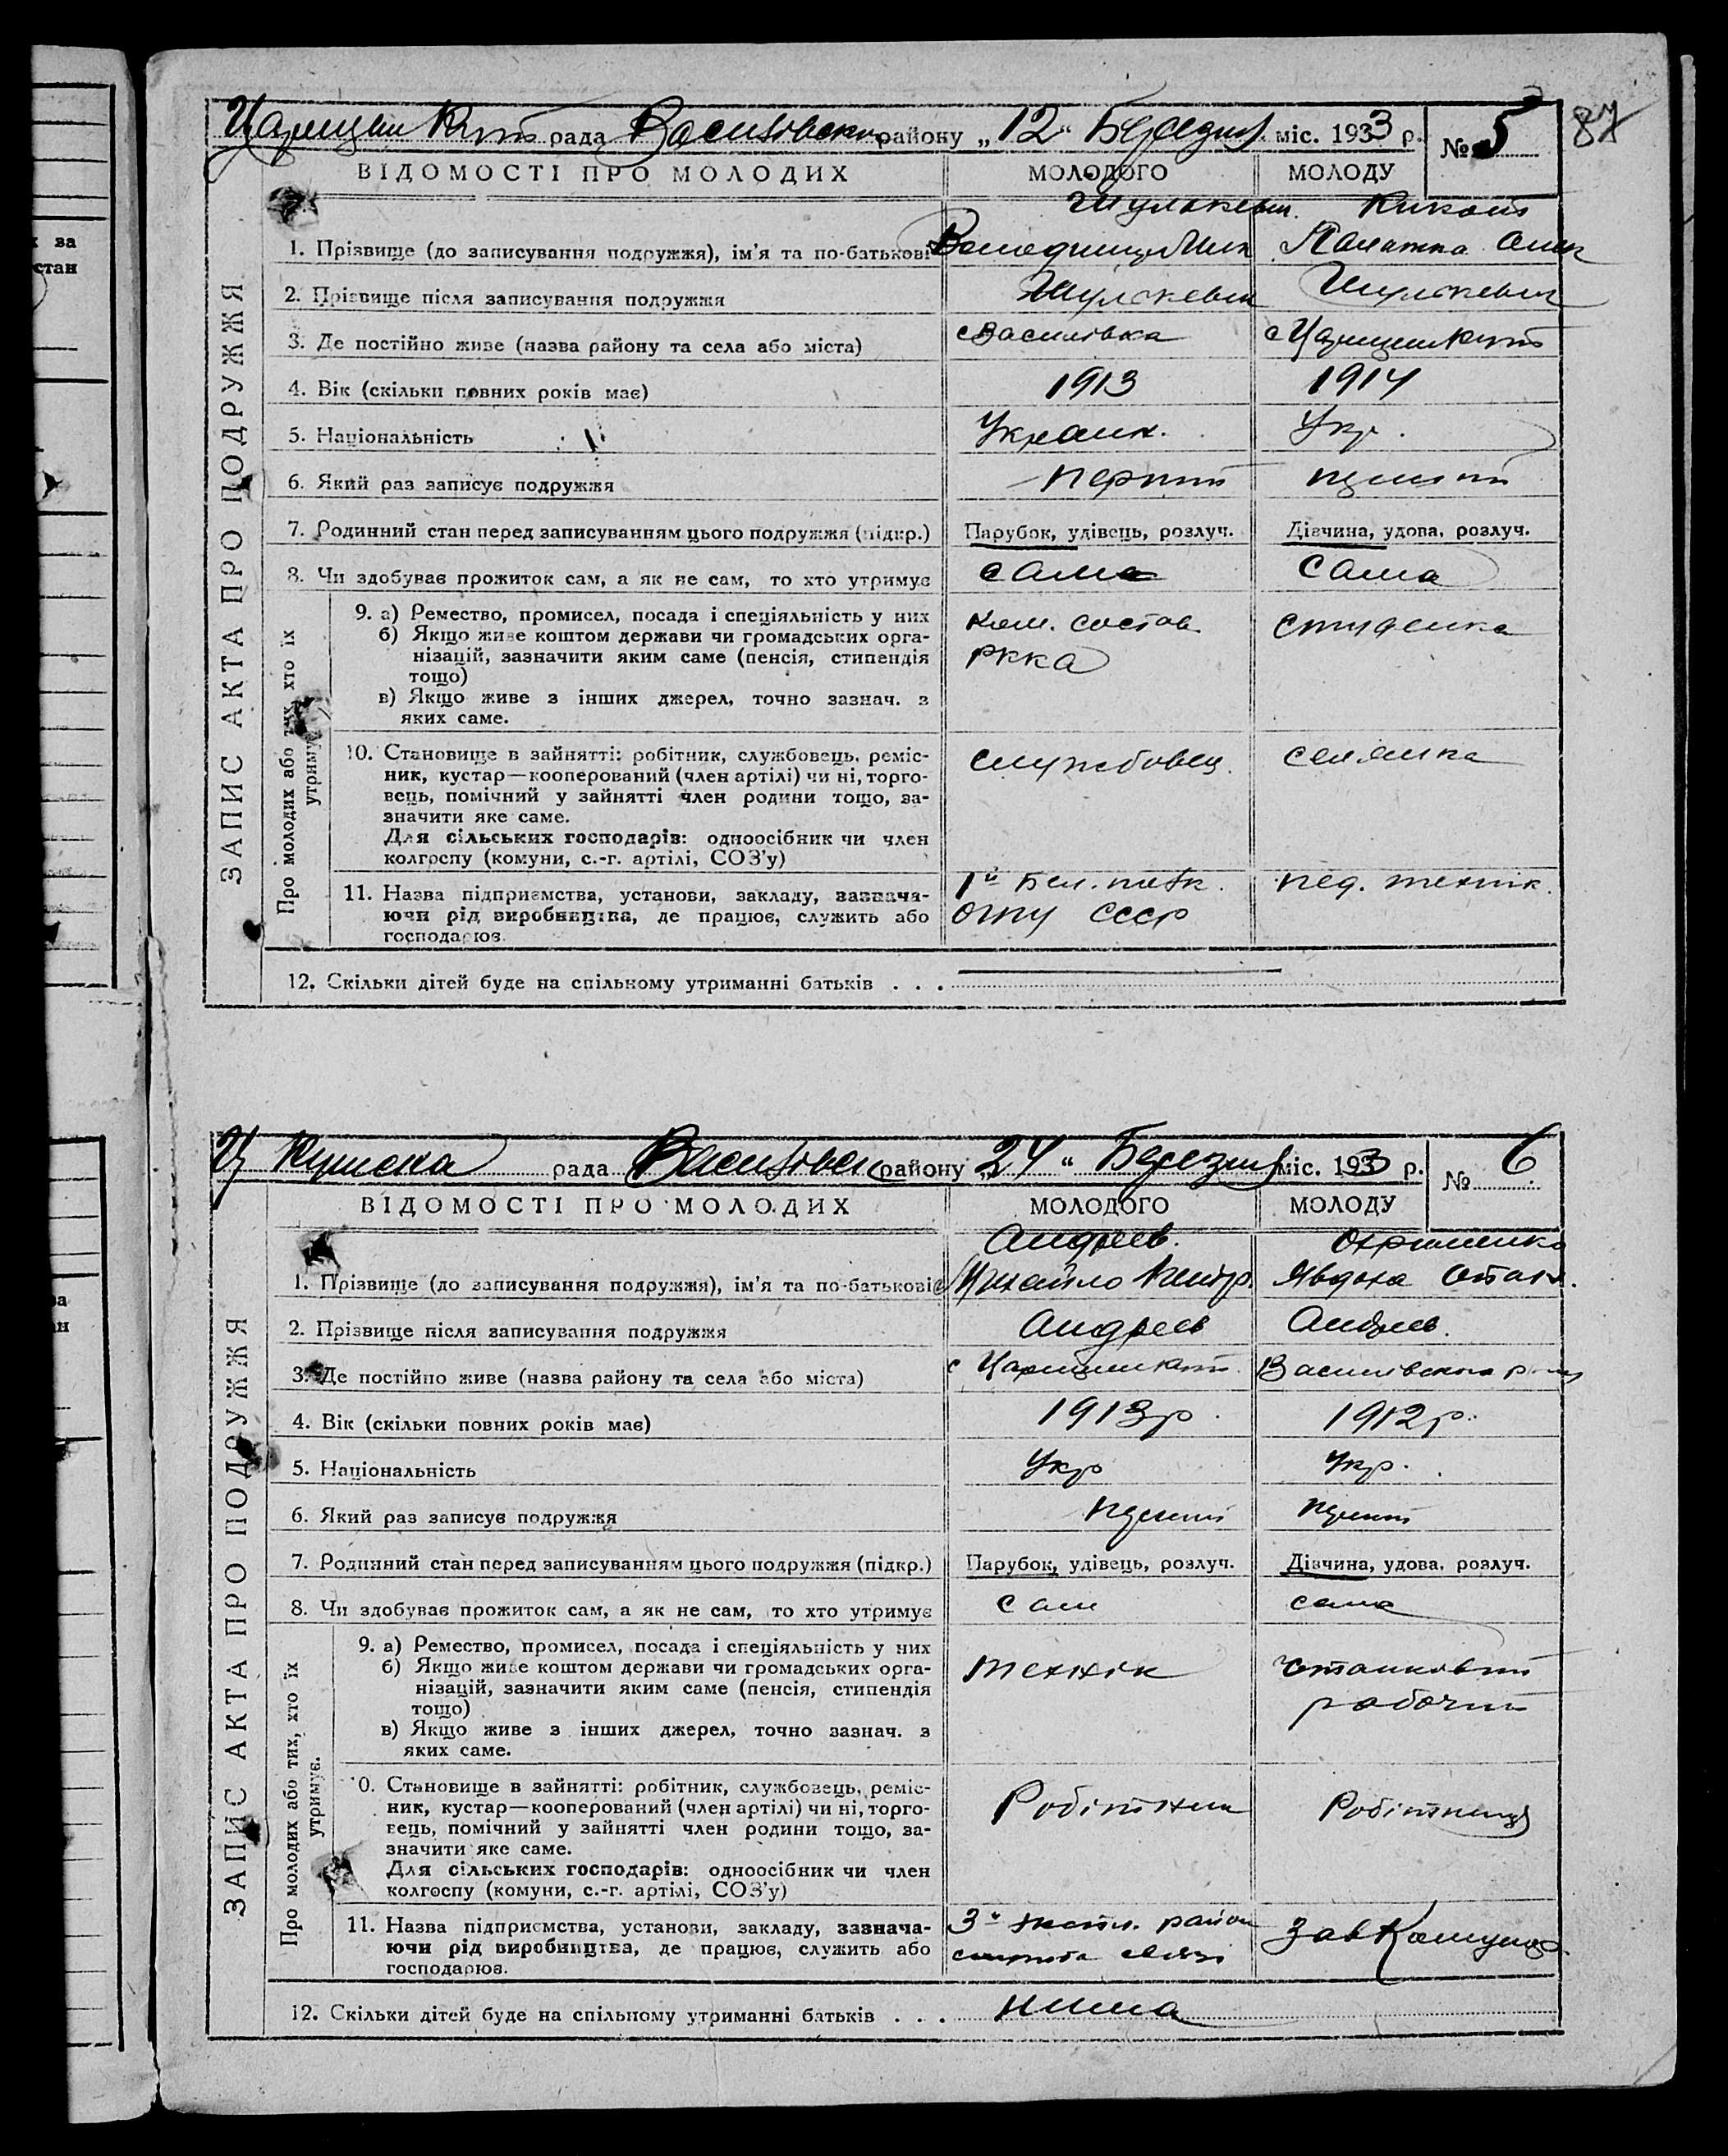 за
стан
87
Царицын Кут рада Васильевск району „12“ Березня міс. 1933 р. № 5
ВІДОМОСТІ ПРО МОЛОДИХ МОЛОДОГО МОЛОДУ
ЗАПИС АКТА ПРО ПОДРУЖЖЯ
Шулькевич
1. Прізвище (до записування подружжя), ім'я та по-батькові
2. Прізвище після записування подружжя Шулькевич Шулькевич
3. Де постійно живе (назва району та села або міста) с Василівка с Царицин Кут
4. Вік (скільки повних років має) 1913 1914
5. Національність Украин. Укр.
6. Який раз записує подружжя перший перший
7. Родинний стан перед записуванням цього подружжя (підкр.) Парубок, удівець, розлуч. Дівчина, удова, розлуч.
8. Чи здобуває прожиток сам, а як не сам, то хто утримує сама сама
Про молодих або тих, хто їх утримує
9. а) Ремество, промисел, посада і спеціяльність у них Ком. состав студентка
б) Якщо живе коштом держави чи громадських орга- РККА
нізацій, зазначити яким саме (пенсія, стипендія
тощо)
в) Якщо живе з інших джерел, точно зазнач. з
яких саме.
10. Становище в зайнятті: робітник, службовець, реміс- службовець селянка
ник, кустар—кооперований (член артілі) чи ні, торго-
вець, помічний у зайнятті член родини тощо, за-
значити яке саме.
Для сільських господарів: одноосібник чи член
колгоспу (комуни, с.-г. артілі, СОЗ'у)
11. Назва підприємства, установи, закладу, зазнача- 1й полк. пед. технік.
ючи рід виробництва, де працює, служить або ОГПУ СССР
господарює.
12. Скільки дітей буде на спільному утриманні батьків . . .
Ц Кутська рада Васильевск району „24“ Березня міс. 1933 р. № 6
ВІДОМОСТІ ПРО МОЛОДИХ МОЛОДОГО МОЛОДУ
ЗАПИС АКТА ПРО ПОДРУЖЖЯ
Андреев. Охрименко
1. Прізвище (до записування подружжя), ім'я та по-батькові Михайло Явдоха
2. Прізвище після записування подружжя Андреев Андреев.
3. Де постійно живе (назва району та села або міста) с Царицин Кут Василівського
4. Вік (скільки повних років має) 1913 р. 1912 р.
5. Національність Укр Укр.
6. Який раз записує подружжя перший перший
7. Родинний стан перед записуванням цього подружжя (підкр.) Парубок, удівець, розлуч. Дівчина, удова, розлуч.
8. Чи здобуває прожиток сам, а як не сам, то хто утримує сам сама
Про молодих або тих, хто їх утримує.
9. а) Ремество, промисел, посада і спеціяльність у них технік
б) Якщо живе коштом держави чи громадських орга-
нізацій, зазначити яким саме (пенсія, стипендія рабочий
тощо)
в) Якщо живе з інших джерел, точно зазнач. з
яких саме.
10. Становище в зайнятті: робітник, службовець, реміс- Робітник Робітниця
ник, кустар—кооперований (член артілі) чи ні, торго-
вець, помічний у зайнятті член родини тощо, за-
значити яке саме.
Для сільських господарів: одноосібник чи член
колгоспу (комуни, с.-г. артілі, СОЗ'у)
11. Назва підприємства, установи, закладу, зазнача- район
ючи рід виробництва, де працює, служить або
господарює.
12. Скільки дітей буде на спільному утриманні батьків . . . нима